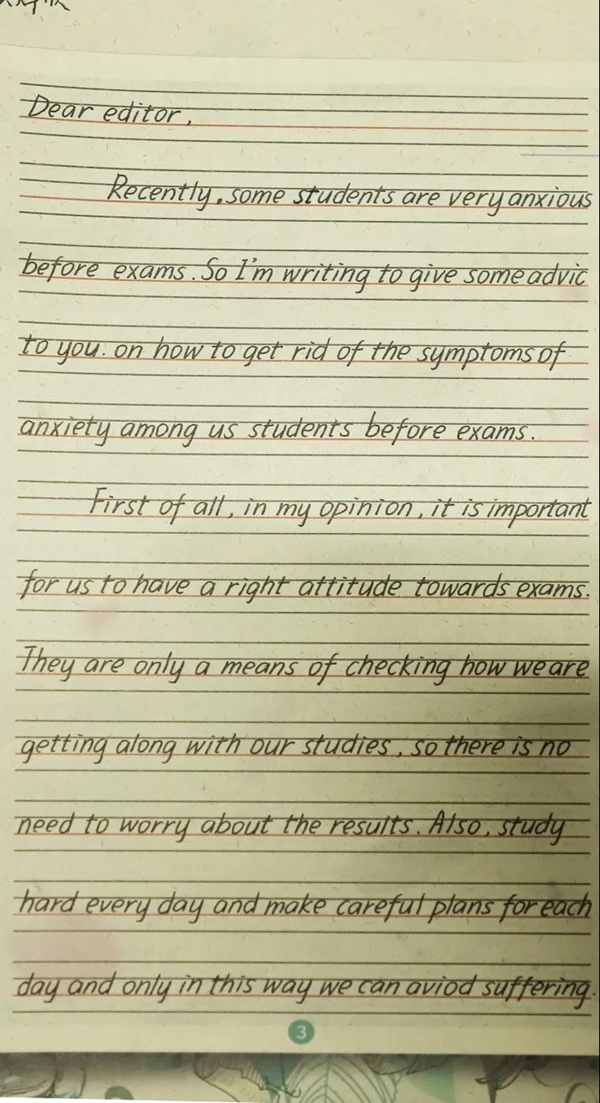 Dear editor,
Recently, some students are very anxious
before exams. So I'm writing to give some advic
to you. on how to get rid of the symptoms of
anxiety among us students before exams.
First of all, in my opinion, it is important
for us to have a right attitude towards exams.
They are only a means of checking how we are
getting along with our studies, so there is no
need to worry about the results. Also, study
hard every day and make careful plans for each
day and only in this way we can aviod suffering.
3